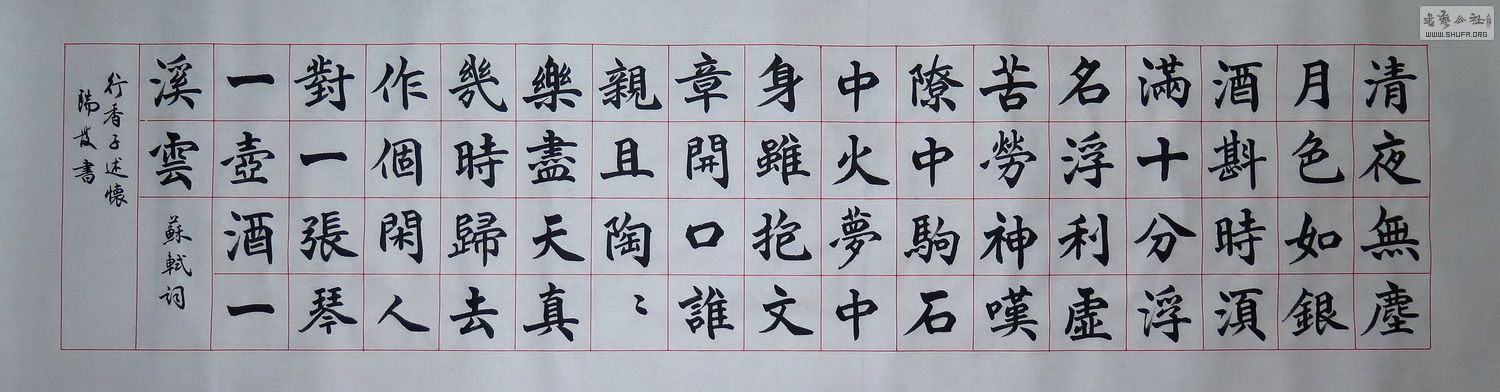 清夜無塵
月色如銀
酒斟時須
滿十分浮
名浮利虛
苦勞神嘆
隙中駒石
中火夢中
身雖抱文
章開口誰
親且陶〻
樂盡天真
幾時歸去
作個閑人
對一張琴
一壺酒一
溪雲
蘇軾詞
行香子述懷
書
書藝公社
WWW.SHUFA.ORG